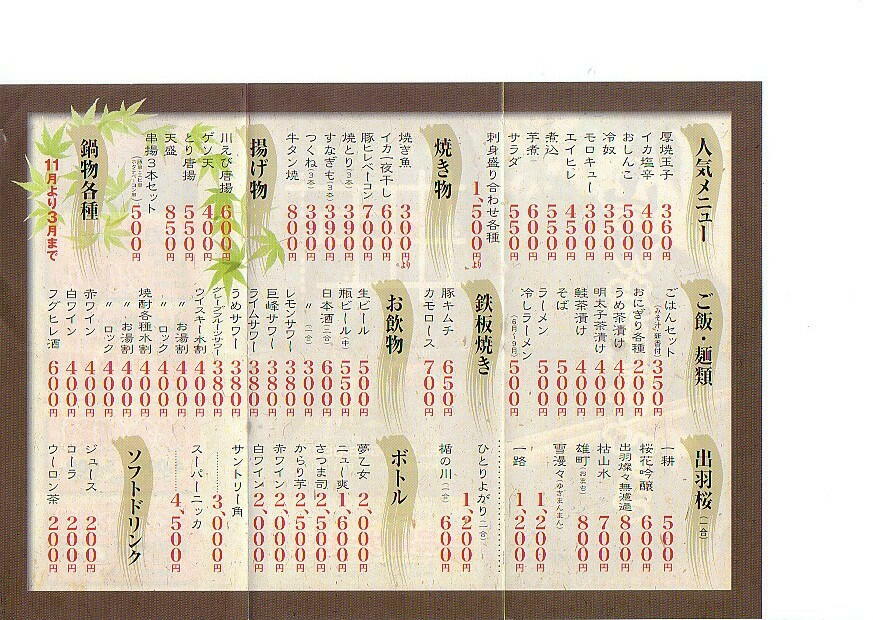 人気メニュー
厚焼玉子 360円
イカ塩辛 400円
おしんこ 500円
冷奴 350円
モロキュー 300円
エイヒレ 450円
煮込 550円
芋煮 600円
サラダ 550円
刺身盛り合わせ各種 1,500円より
焼き物
焼き魚 300円より
イカ一夜干し 600円
豚ヒレベーコン 700円
焼とり(3本) 390円
すなぎも(3本) 390円
つくね(3本) 390円
牛タン焼 800円
揚げ物
川えび唐揚 600円
ゲソ天 400円
とり唐揚 550円
天盛 850円
串揚3本セット 500円
鍋物各種
11月より3月まで
ご飯・麺類
ごはんセット(みそ汁・新香付) 350円
おにぎり各種 200円
うめ茶漬け 400円
明太子茶漬け 400円
鮭茶漬け 400円
そば 500円
ラーメン 500円
冷しラーメン(6月〜9月) 550円
鉄板焼き
豚キムチ 650円
カモロース 700円
お飲物
生ビール 500円
瓶ビール(中) 550円
日本酒(二合) 600円
〃(一合) 300円
レモンサワー 380円
巨峰サワー 380円
ライムサワー 380円
うめサワー 380円
グレープフルーツサワー 380円
ウイスキー水割 400円
〃お湯割 400円
〃ロック 400円
焼酎各種水割 400円
〃お湯割 400円
〃ロック 400円
赤ワイン 400円
白ワイン 400円
フグヒレ酒 600円
出羽桜(一合)
一耕 500円
桜花吟醸 600円
出羽燦々無濾過 800円
枯山水 700円
雄町(おまち) 800円
雪漫々(ゆきまんまん) 1,200円
一路 1,200円
ひとりよがり(二合) 1,200円
楯の川(一合) 600円
ボトル
夢乙女 2,000円
ニュー爽 1,600円
さつま司 2,500円
からり芋 2,500円
赤ワイン 2,000円
白ワイン 2,000円
サントリー角 3,000円
スーパーニッカ 4,500円
ソフトドリンク
ジュース 200円
コーラ 200円
ウーロン茶 200円